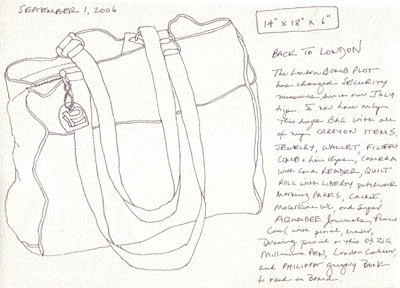 SEPTEMBER 1, 2006
14" x 18" x 6"
BACK TO LONDON
The London BOMB PLOT
has changed SECURITY
measures since our JULY
trip. I now have only
this single BAG with all
of my CARRYON ITEMS,
JEWELRY, WALLET, FILOFAX
COMB & hair clips, CAMERA
with card READER, QUILT
ROLL with LIBERTY patchwork
MORNING PAGES, Cachet,
Moleskine WC and Super
AQUABEE Journals, Pencil
Case (with pencil, eraser,
Drawing pencil & this 03 ZIG
Millennium PEN, London
and PHILIPPA Gregory BOOK
to read on Board.